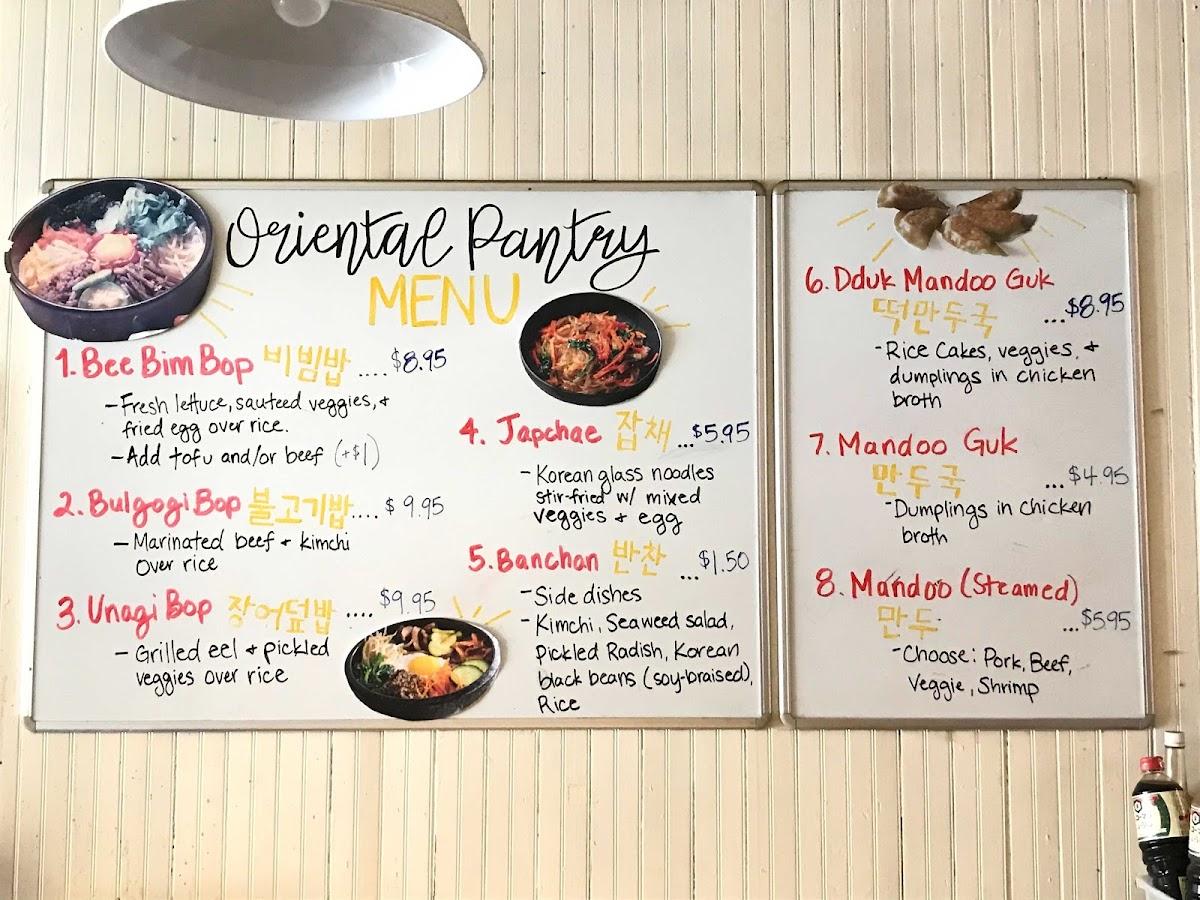 Oriental Pantry
MENU
1. Bee Bim Bop 비빔밥 .... $8.95
- Fresh lettuce, sauteed veggies, +
fried egg over rice.
- Add tofu and/or beef (+$1)
2. Bulgogi Bop 불고기밥.... $ 9.95
- Marinated beef + kimchi
over rice
3. Unagi Bop 장어덮밥 .... $9.95
- Grilled eel + pickled
veggies over rice
4. Japchae 잡채 ...$5.95
- Korean glass noodles
stir-fried w/ mixed
veggies + egg
5. Banchan 반찬 ... $1.50
- Side dishes
- Kimchi, Seaweed salad,
Pickled Radish, Korean
black beans (soy-braised),
Rice
6. Dduk Mandoo Guk
떡만두국 ...$8.95
- Rice Cakes, veggies, +
dumplings in chicken
broth
7. Mandoo Guk
만두국 ... $4.95
- Dumplings in chicken
broth
8. Mandoo (Steamed)
만두 ...$5.95
- Choose: Pork, Beef,
Veggie, Shrimp